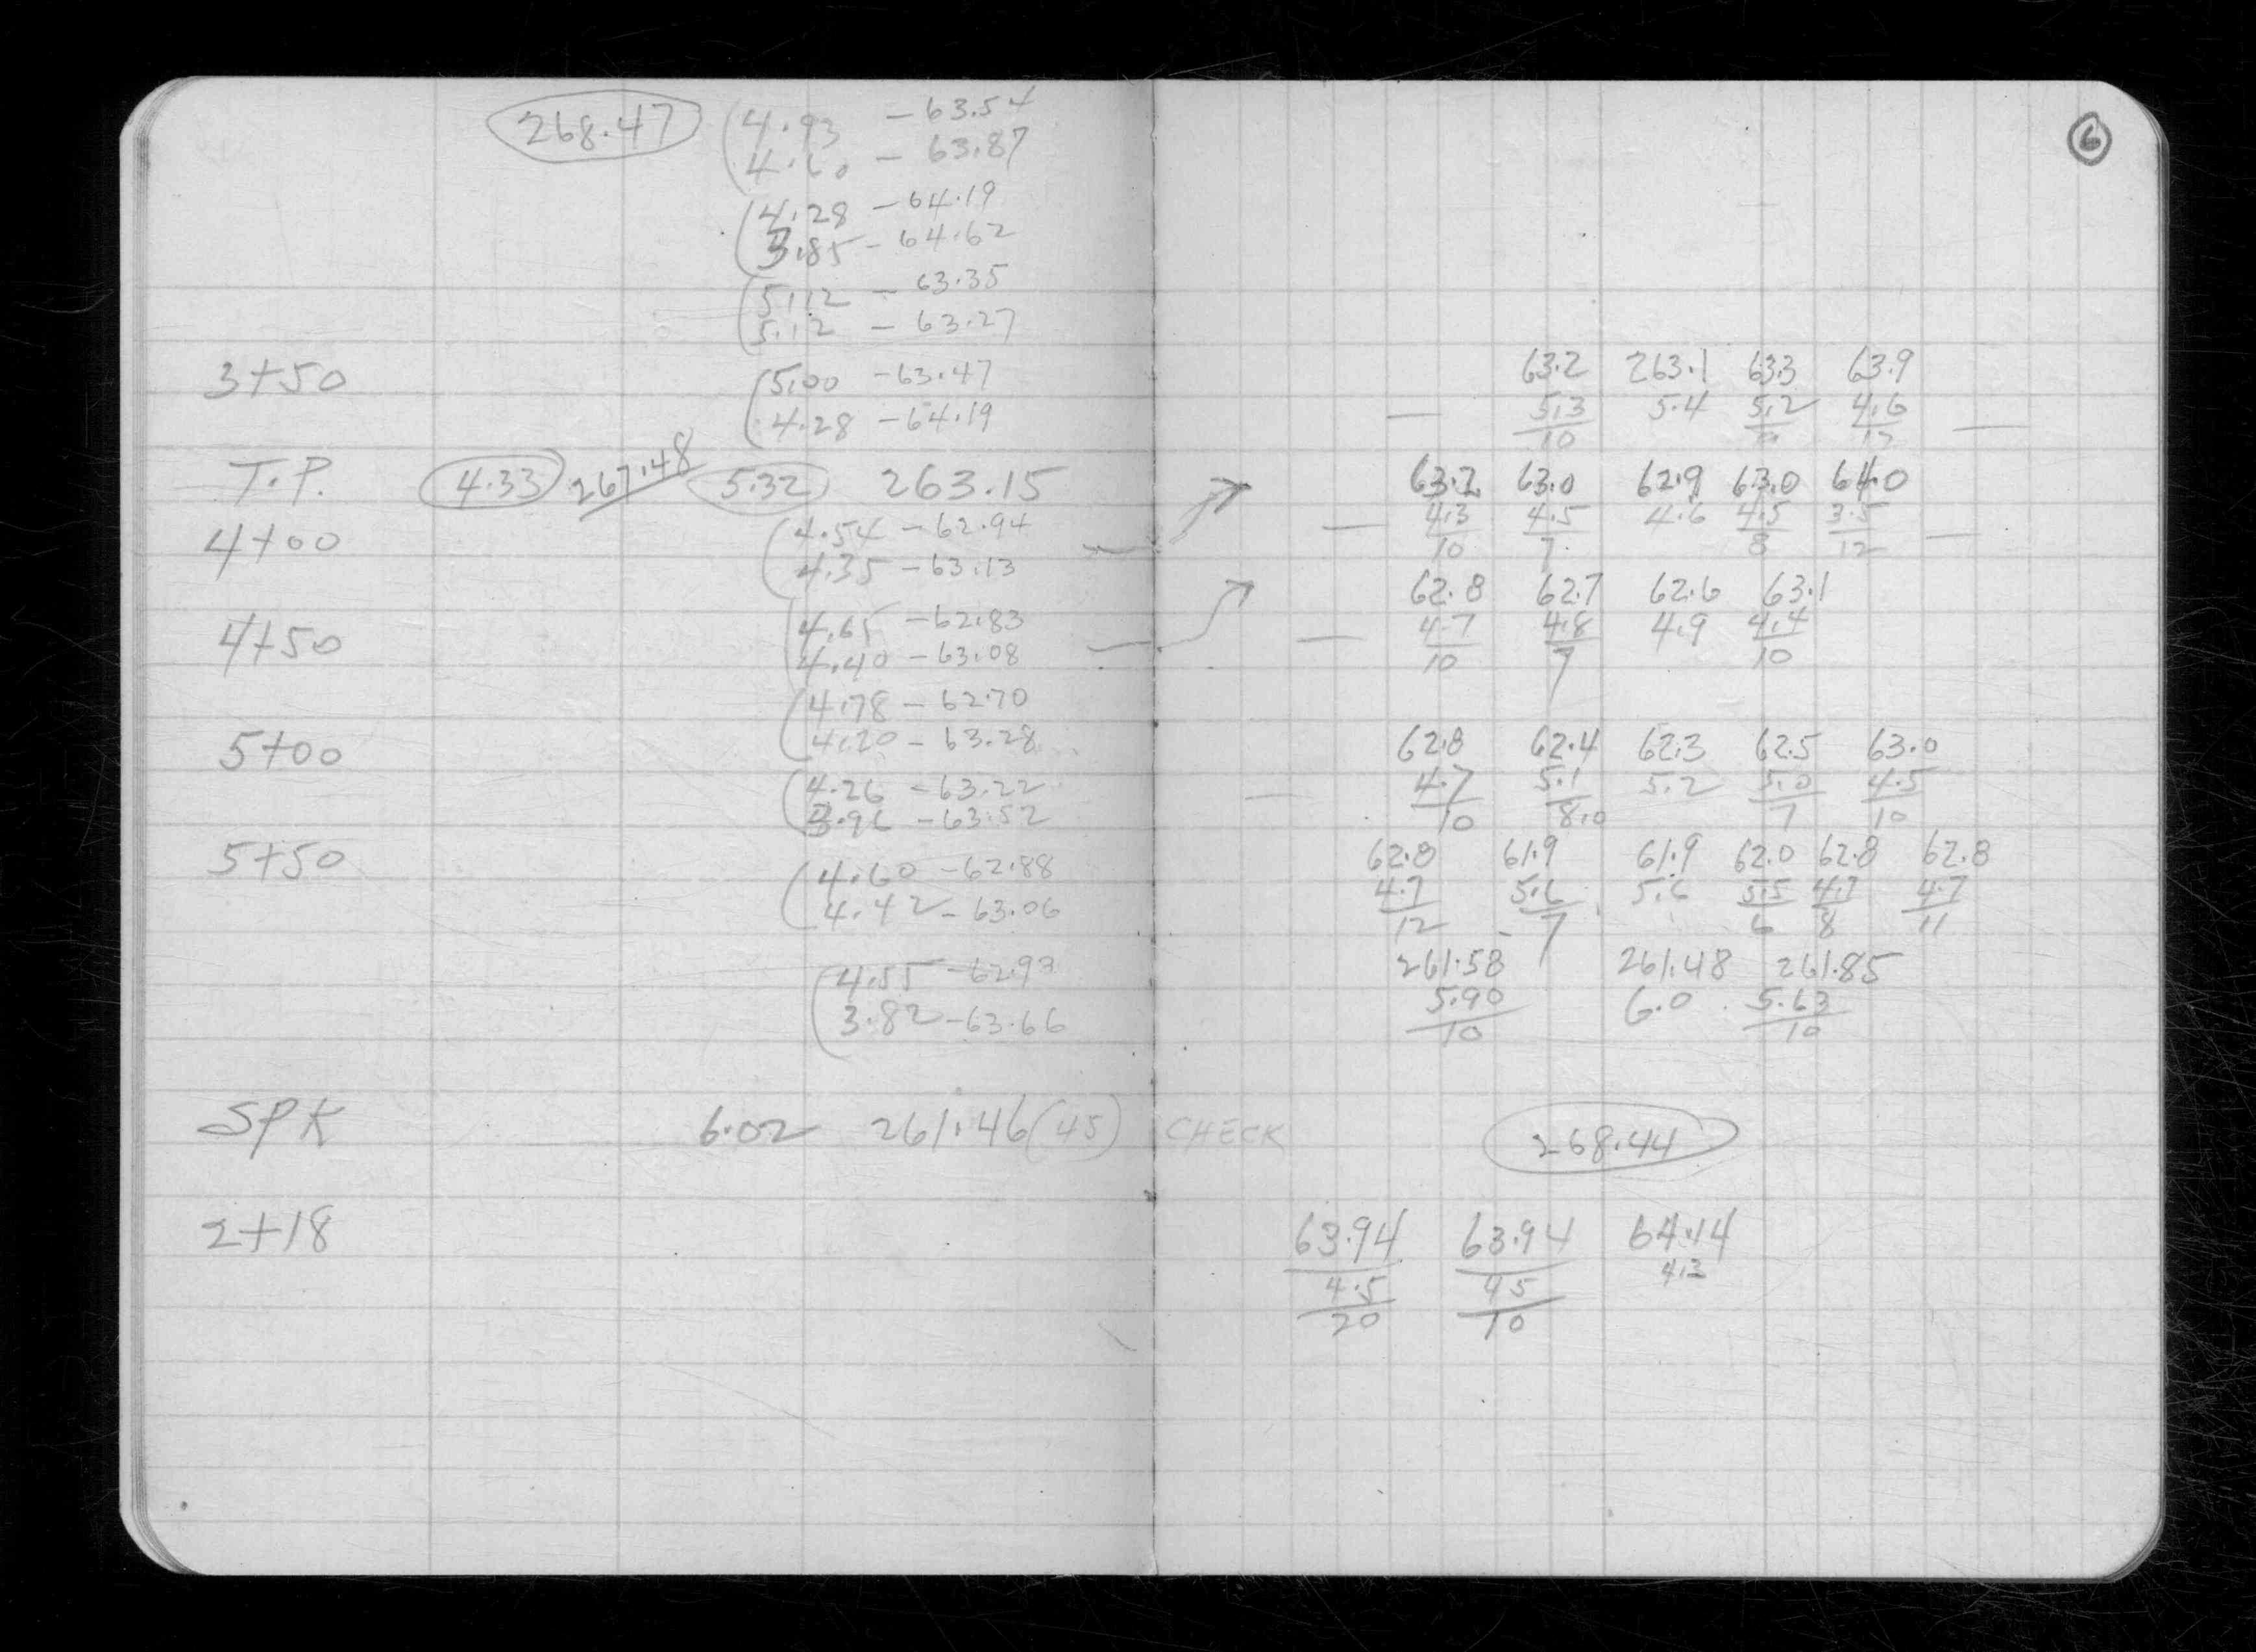 6
268.47 (4.93 - 63.54
4.60 - 63.87
(4.28 - 64.19
3.85 - 64.62
(5.12 - 63.35
5.12 - 63.27
3+50 (5.00 - 63.47 63.2 263.1 63.3 63.9
4.28 - 64.19 — 5.3 5.4 5.2 4.6 —
10 11 12
T.P. 4.33 267.48 5.32 263.15 63.2 63.0 62.9 63.0 64.0
4+00 (4.54 - 62.94 — 4.3 4.5 4.6 4.5 3.5 —
4.35 - 63.13 10 7 8 12
62.8 62.7 62.6 63.1
4+50 (4.65 - 62.83 — 4.7 4.8 4.9 4.4
4.40 - 63.08 10 7 10
(4.78 - 62.70
5+00 4.20 - 63.28 62.8 62.4 62.3 62.5 63.0
(4.26 - 63.22 — 4.7 5.1 5.2 5.0 4.5
3.96 - 63.52 10 8.0 7 10
5+50 (4.60 - 62.88 62.8 61.9 61.9 62.0 62.8 62.8
4.42 - 63.06 4.7 5.6 5.6 5.5 4.7 4.7
12 7 6 8 11
(4.55 - 62.93 261.58 261.48 261.85
3.82 - 63.66 5.90 6.0 5.63
10 10
SPK 6.02 261.46 (45) CHECK 268.44
2+18 63.94 63.94 64.14
4.5 45 4.3
20 10